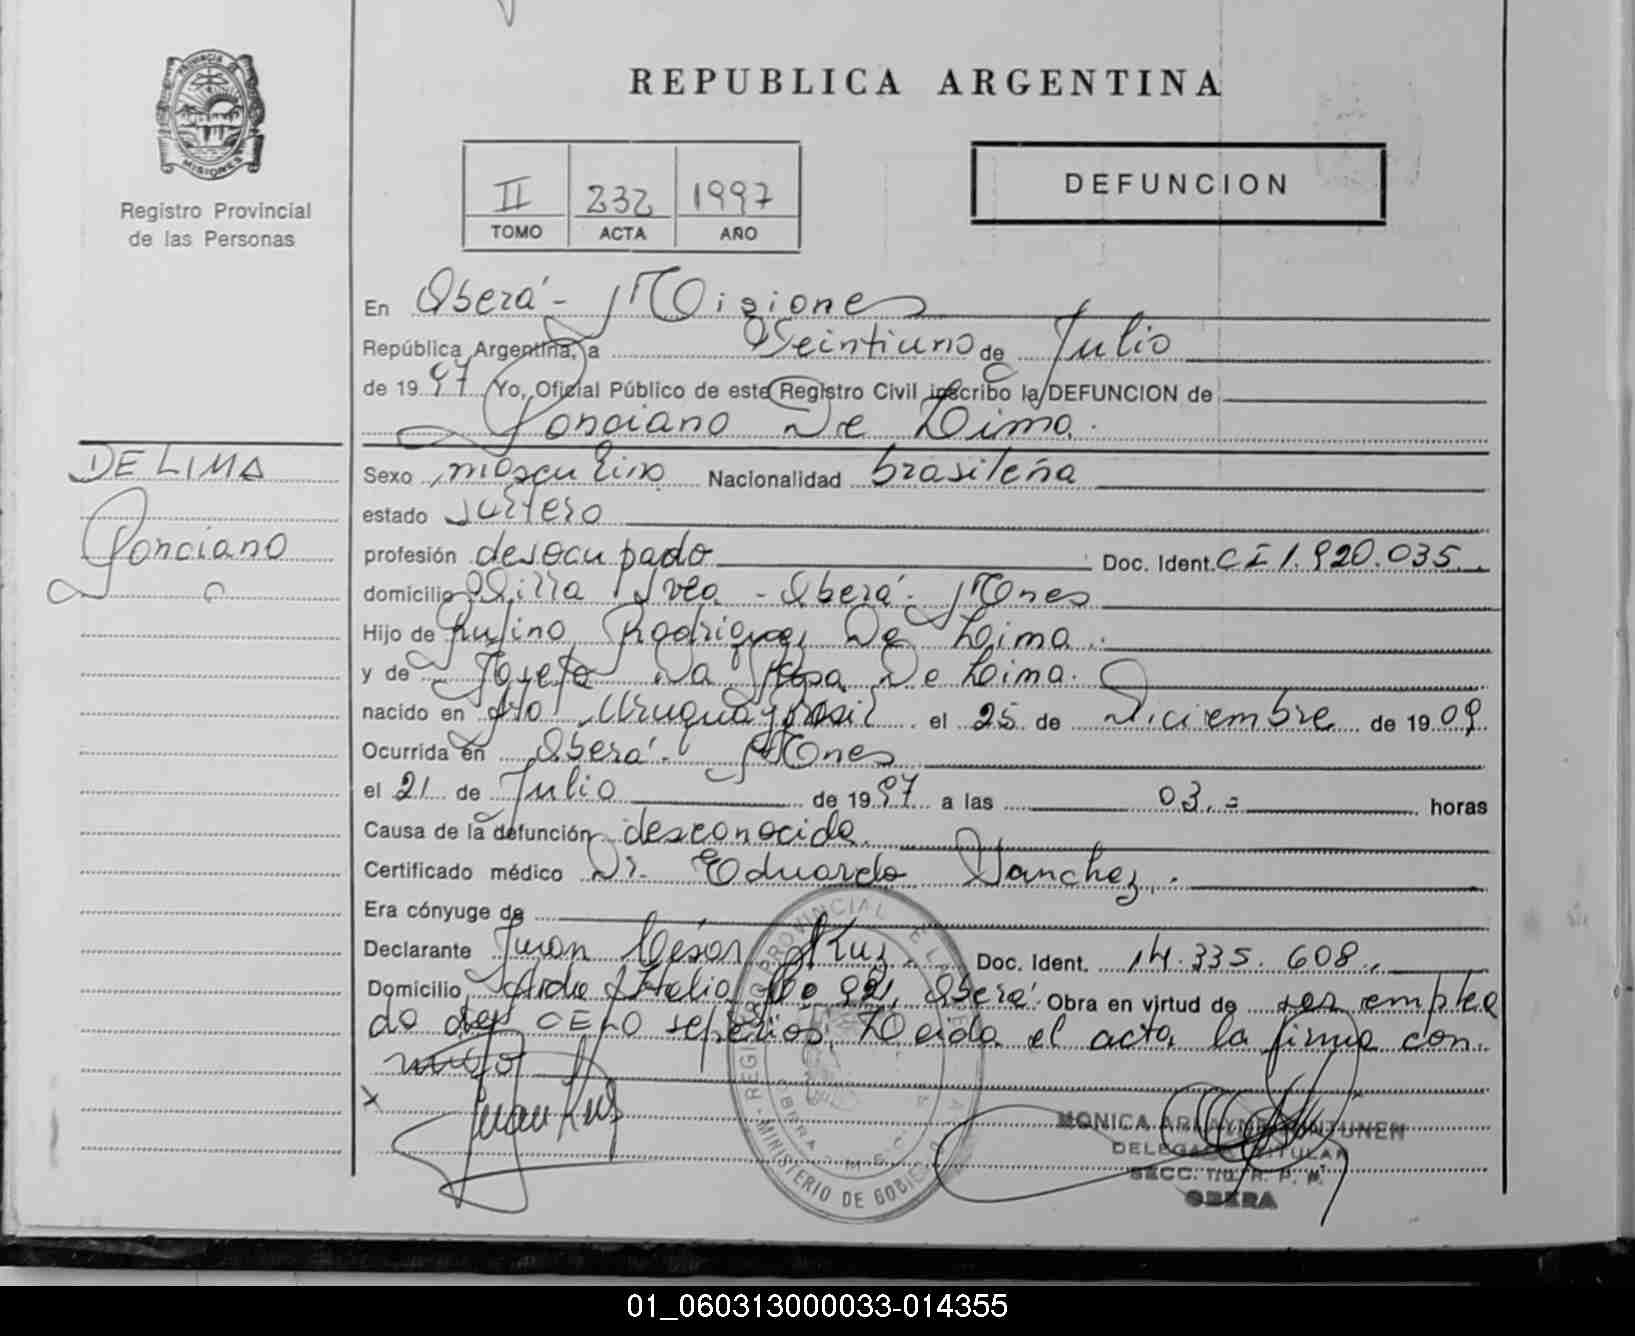 REPUBLICA ARGENTINA
PROVINCIA DE MISIONES
Registro Provincial
de las Personas
II 232 1997
TOMO ACTA AÑO
DEFUNCION
En Oberá - Misiones
República Argentina, a Veintiuno de Julio
de 1997 Yo, Oficial Público de este Registro Civil inscribo la DEFUNCION de
Ponciano De Lima.
DE LIMA
Ponciano
Sexo masculino Nacionalidad brasileña
estado soltero
profesión desocupado Doc. Ident. CI 1.920.035.
domicilio Villa Svea - Oberá - Mnes
Hijo de Rufino Rodriguez De Lima.
y de Da De Lima.
nacido en Alto Uruguay Brasil el 25 de Diciembre de 1909.
Ocurrida en Oberá - Mnes
el 21 de Julio de 1997 a las 03.- horas
Causa de la defunción desconocida.
Certificado médico Dr. Eduardo Sanchez.
Era cónyuge de
Declarante Juan César Kruz. Doc. Ident. 14.335.608.
Domicilio Italia No 92, Oberá. Obra en virtud de ser emplea
do del CELO sepelios. Leida el acta la firma con
migo
x Juan Kruz
REGISTRO PROVINCIAL DE LAS PERSONAS
MINISTERIO DE GOBIERNO
MONICA
DELEGADA TITULAR
SECC. R. P.
OBERA
01_060313000033-014355